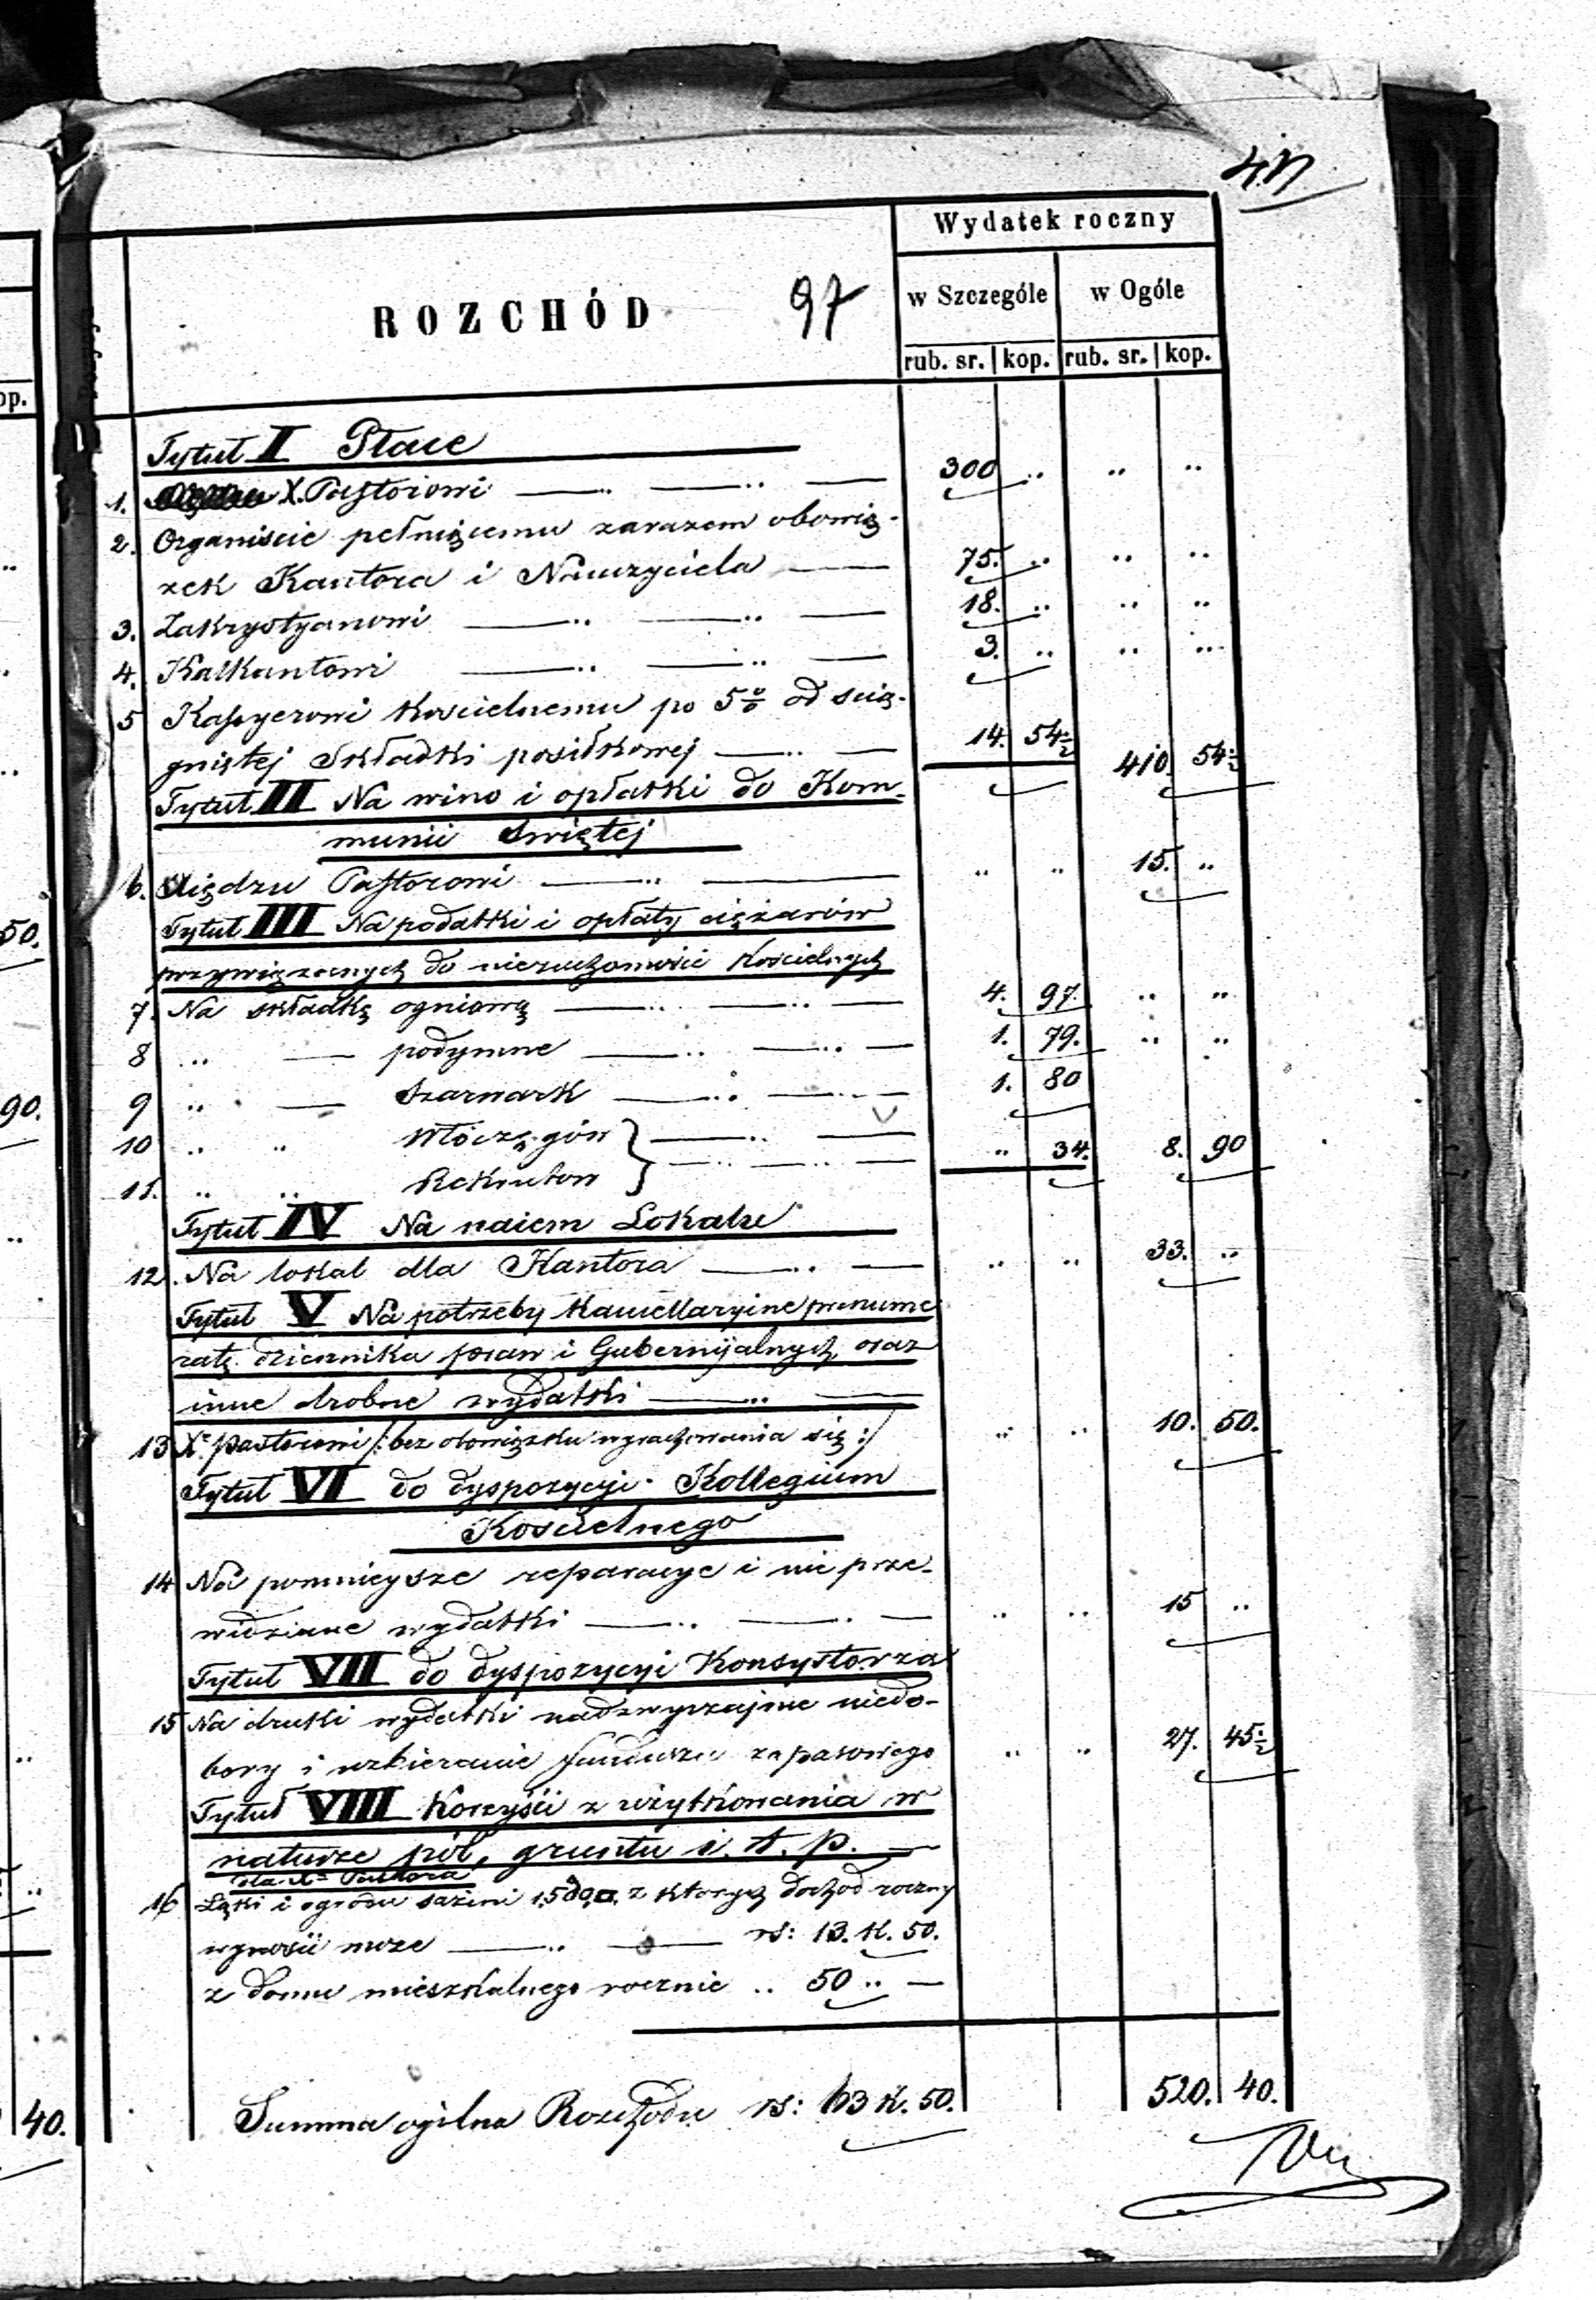 4.
Wydatek roczny
ROZCHÓD 97
w Szczególe w Ogóle
rub. sr. kop. rub. sr. kop.
op.
Tytuł II Płace
1. X. Pastorowi 300 .. .. ..
2. Organiście pełniącemu zarazem obowią-
zek Kantora i Nauczyciela 75. .. .. ..
3. Zakrystyanowi 18. .. .. ..
4. Kalkantowi 3. .. .. ..
5 Kassyerowi Kościelnemu po 5% od scią-
gniętej Składki posiłkowej 14. 54½ 410. 54½
Tytuł II Na wino i opłatki do Kom-
munii Swiętej
6. Xiędzu Pastorowi .. .. 15. ..
50.
Tytuł III Na podatki i opłaty ciężarów
przywiązanych do nieruchomości Kościelnych
7. Na składkę ogniową 4. 97. .. ..
8 .. — podymne 1. 79. .. ..
90.
9 .. — Szarwark 1. 80
10 .. .. Włóczęgów
11. .. .. Rekrutow } .. 34. 8. 90
Tytuł IV Na naiem Lokalu
12. Na lokal dla Kantora .. .. 33. ..
Tytuł V Na potrzeby Kancellaryine prenume
ratę dziennika praw i Gubernijalnych, oraz
inne drobne wydatki
13 X. Pastorowi /: bez obowiązku wyrachowania się :/ .. .. 10. 50.
Tytuł VI do dyspozycyi Kollegium
Kościelnego
14 Na pomnieysze reparacye i nie prze-
widziane wydatki .. .. 15 ..
Tytuł VII do dyspozycyi Konsystorza
15 Na druki wydatki nadzwyczajne niedo-
bory i uzbieranie funduszu zapasowego .. .. 27. 45½
Tytuł VIII Korzyści z użytkowania w
naturze pól, gruntu i. t. p.
dla X. Pastora
16 Łąki i ogrodu sażeni z których dochod roczny
wynosić może rs: 13. k. 50.
z domu mieszkalnego rocznie .. 50 .. —
40.
Summa ogólna Rozchodu rs: 63 k. 50. 520. 40.